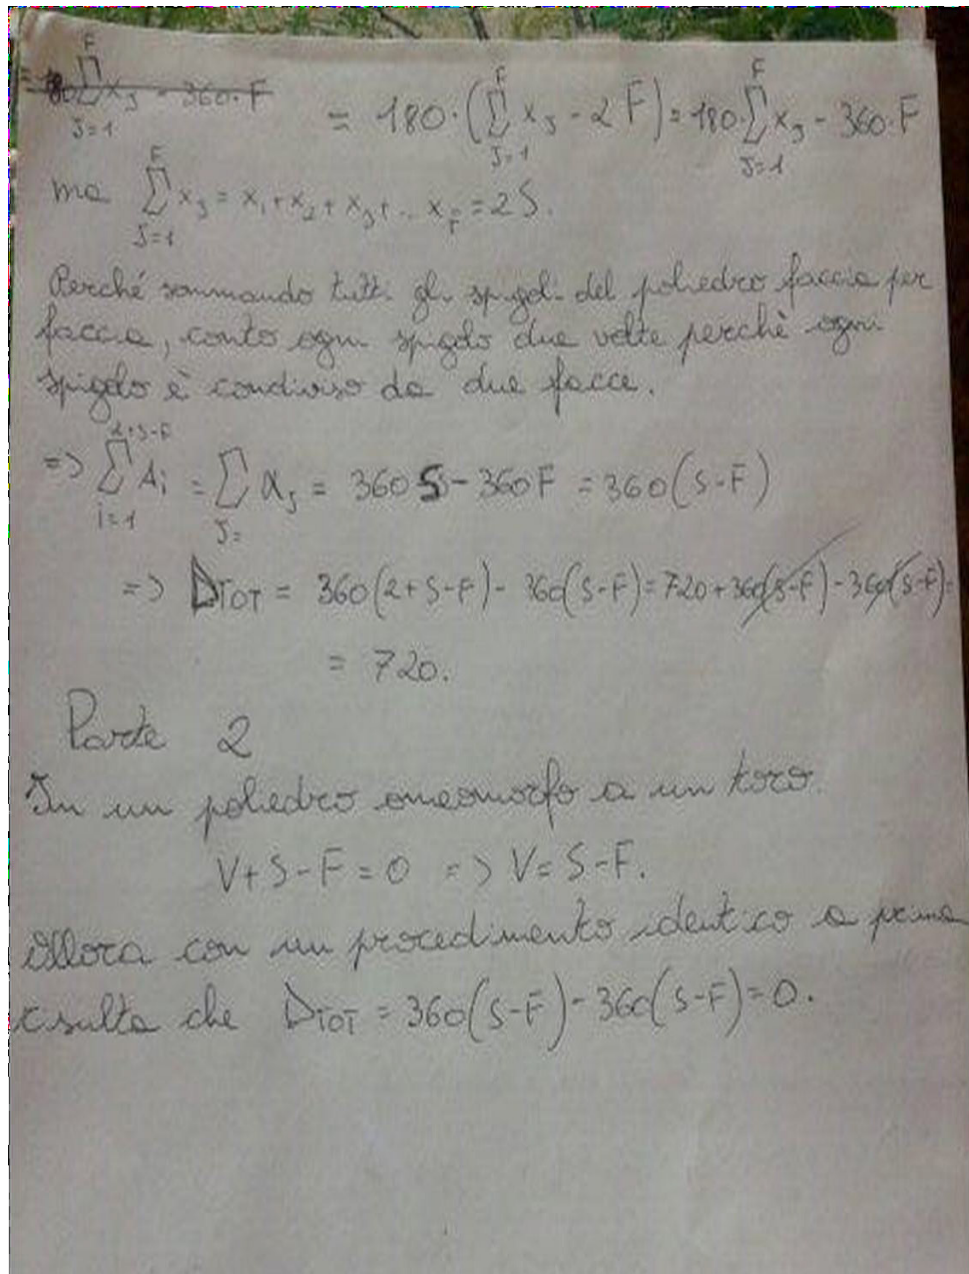 = 180 ∑_{J=1}^{F} x_J - 360·F
= 180·(∑_{J=1}^{F} x_J - 2F) = 180·∑_{J=1}^{F} x_J - 360·F
ma ∑_{J=1}^{F} x_J = x_1 + x_2 + x_3 + .. x_F = 2S.
Perché sommando tutti gli spigoli del poliedro faccia per
faccia, conto ogni spigolo due volte perchè ogni
spigolo è condiviso da due facce.
=> ∑_{i=1}^{2+S-F} A_i = ∑_{J=} α_J = 360S - 360F = 360(S-F)
=> D_TOT = 360(2+S-F) - 360(S-F) = 720 + 360(S-F) - 360(S-F) =
= 720.
Parte 2
In un poliedro omeomorfo a un toro.
V+S-F=0 => V=S-F.
Allora con un procedimento identico a prima
risulta che D_TOT = 360(S-F) - 360(S-F) = 0.